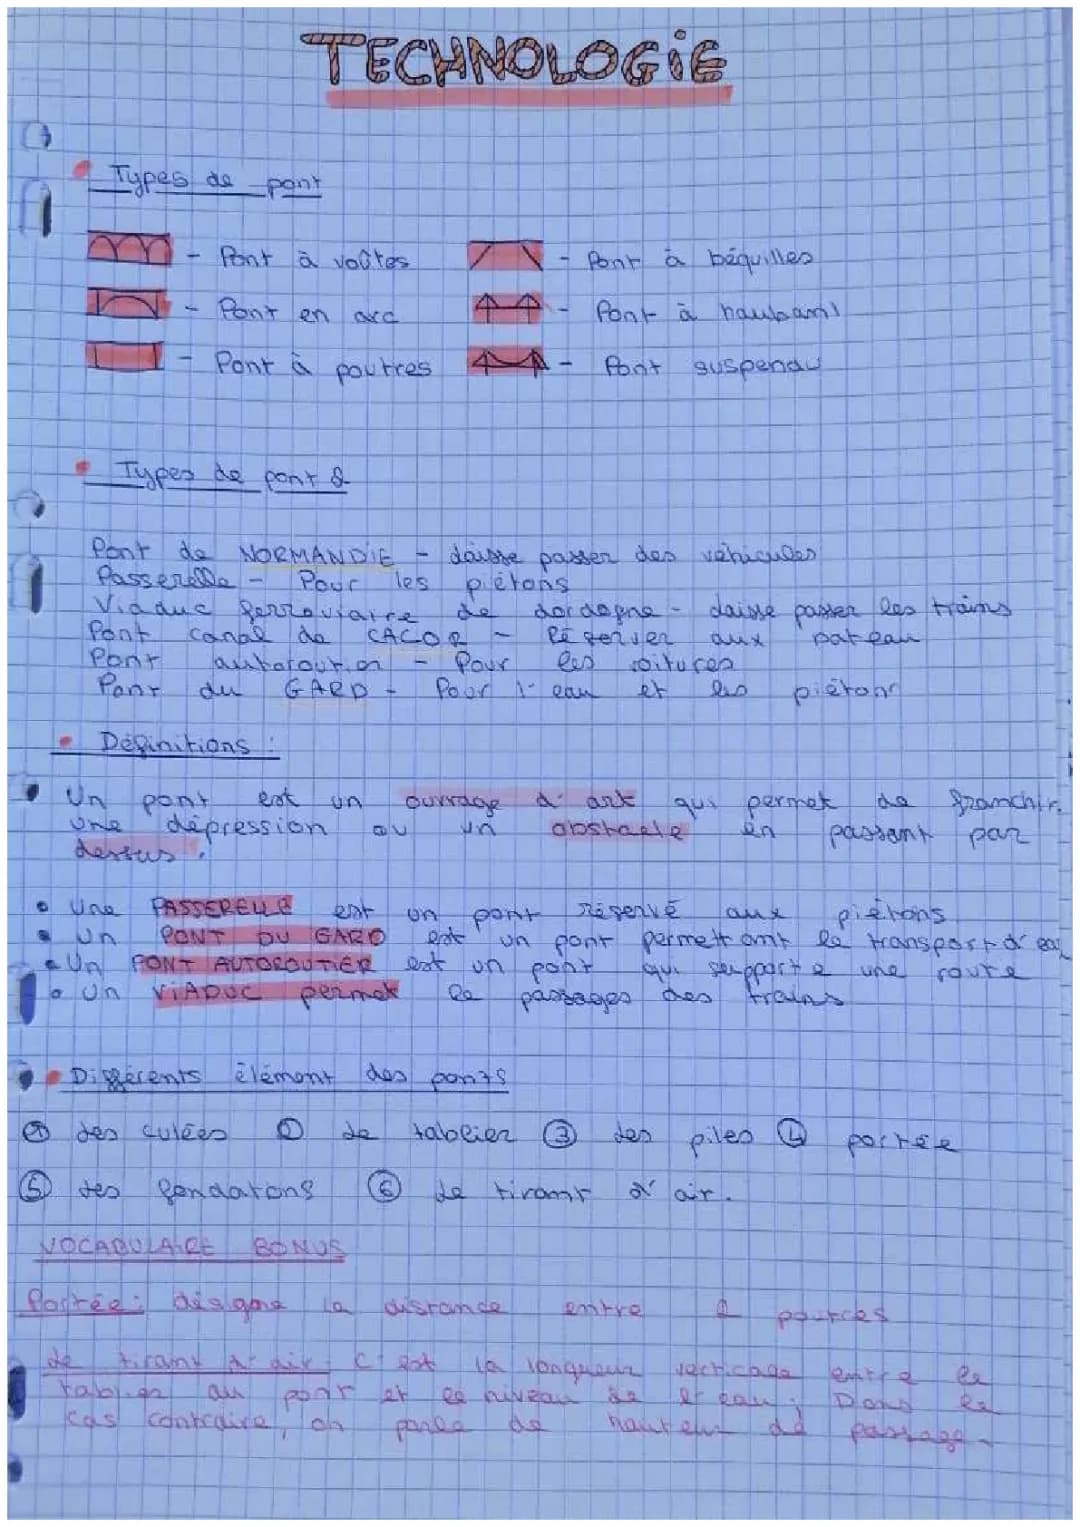 TECHNOLOGIE
Types de pont
- Pont à voûtes
- Pont à béquilles
- Pont en arc
- Pont à haubans
- Pont à poutres
- Pont suspendu
Types de pont 2
Pont de NORMANDIE - Laisse passer des véhicules
Passerelle - Pour les piétons
Viaduc ferroviaire de dordogne - Laisse passer les trains
Pont canal de CACOR - Réserver aux bateau
Pont autoroutier - Pour les voitures
Pont du GARD - Pour l'eau et les piétons
Définitions :
Un pont est un ouvrage d'art qui permet de franchir
une dépression ou un obstacle en passant par
dessus.
Une PASSERELLE est un pont réservé aux piétons
Un PONT DU GARD est un pont permettant le transport d'eau
Un PONT AUTOROUTIER est un pont qui supporte une route
Un VIADUC permet le passages des trains
Différents élément des ponts
① des culées ② Le tablier ③ des piles ④ portée
⑤ Les fondatons ⑥ Le tirant d'air.
VOCABULAIRE BONUS
Portée : désigne la distance entre 2 poutres
Le tirant d'air : C'est la longueur verticale entre le
tablier du pont et le niveau de l'eau ; Dans le
cas contraire, on parle de hauteur de passage.